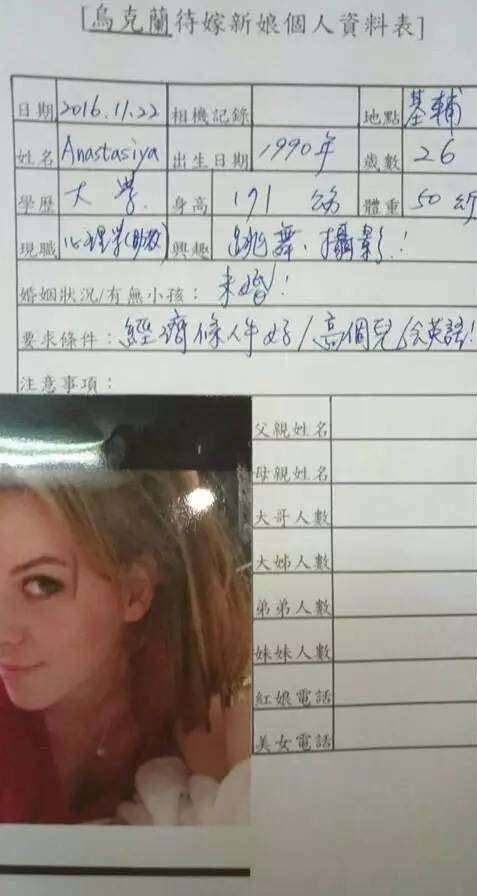 [烏克蘭待嫁新娘個人資料表]
日期 2016.11.22 相機記錄 地點 基輔
姓名 Anastasiya 出生日期 1990年 歲數 26
學歷 大學. 身高 171 公分 體重 50公斤
現職 心理学(助教) 興趣 跳舞、攝影!
婚姻狀況/有無小孩: 未婚!
要求條件: 經濟條件好/高個兒/会英語!
注意事項:
父親姓名
母親姓名
大哥人數
大姊人數
弟弟人數
妹妹人數
紅娘電話
美女電話